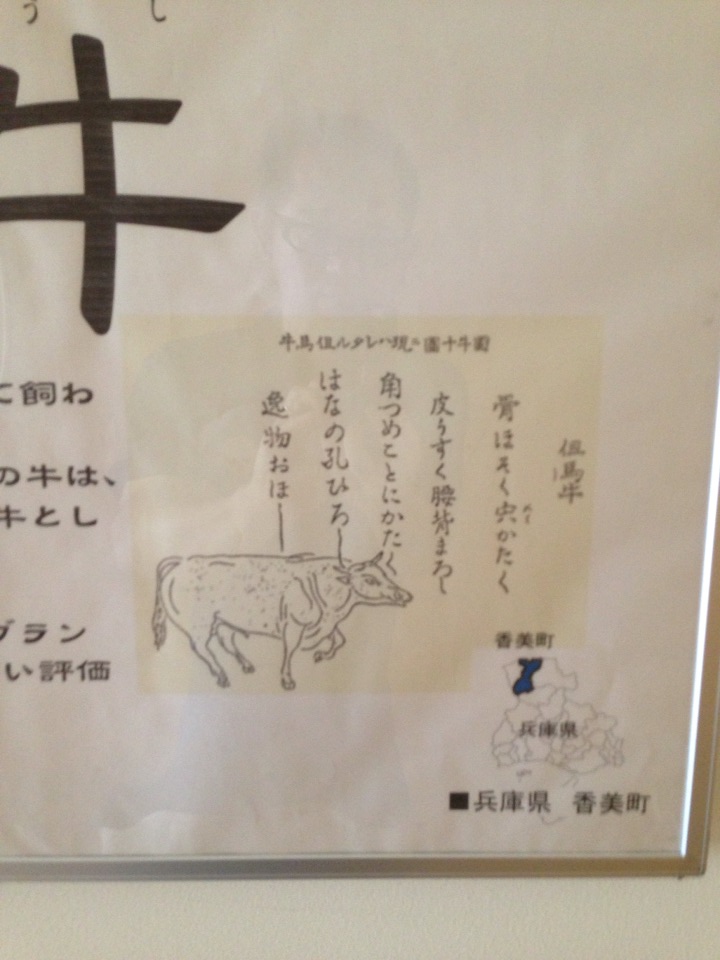 うし
牛
に飼わ
の牛は、
牛とし
ブラン
い評価
牛馬但ルタレハ現ニ圖十牛國
但馬牛
骨ほそく宍かたく
皮うすく腰背まろし
角つめことにかたく
はなの孔ひろし
逸物おほし
香美町
兵庫県
■兵庫県 香美町